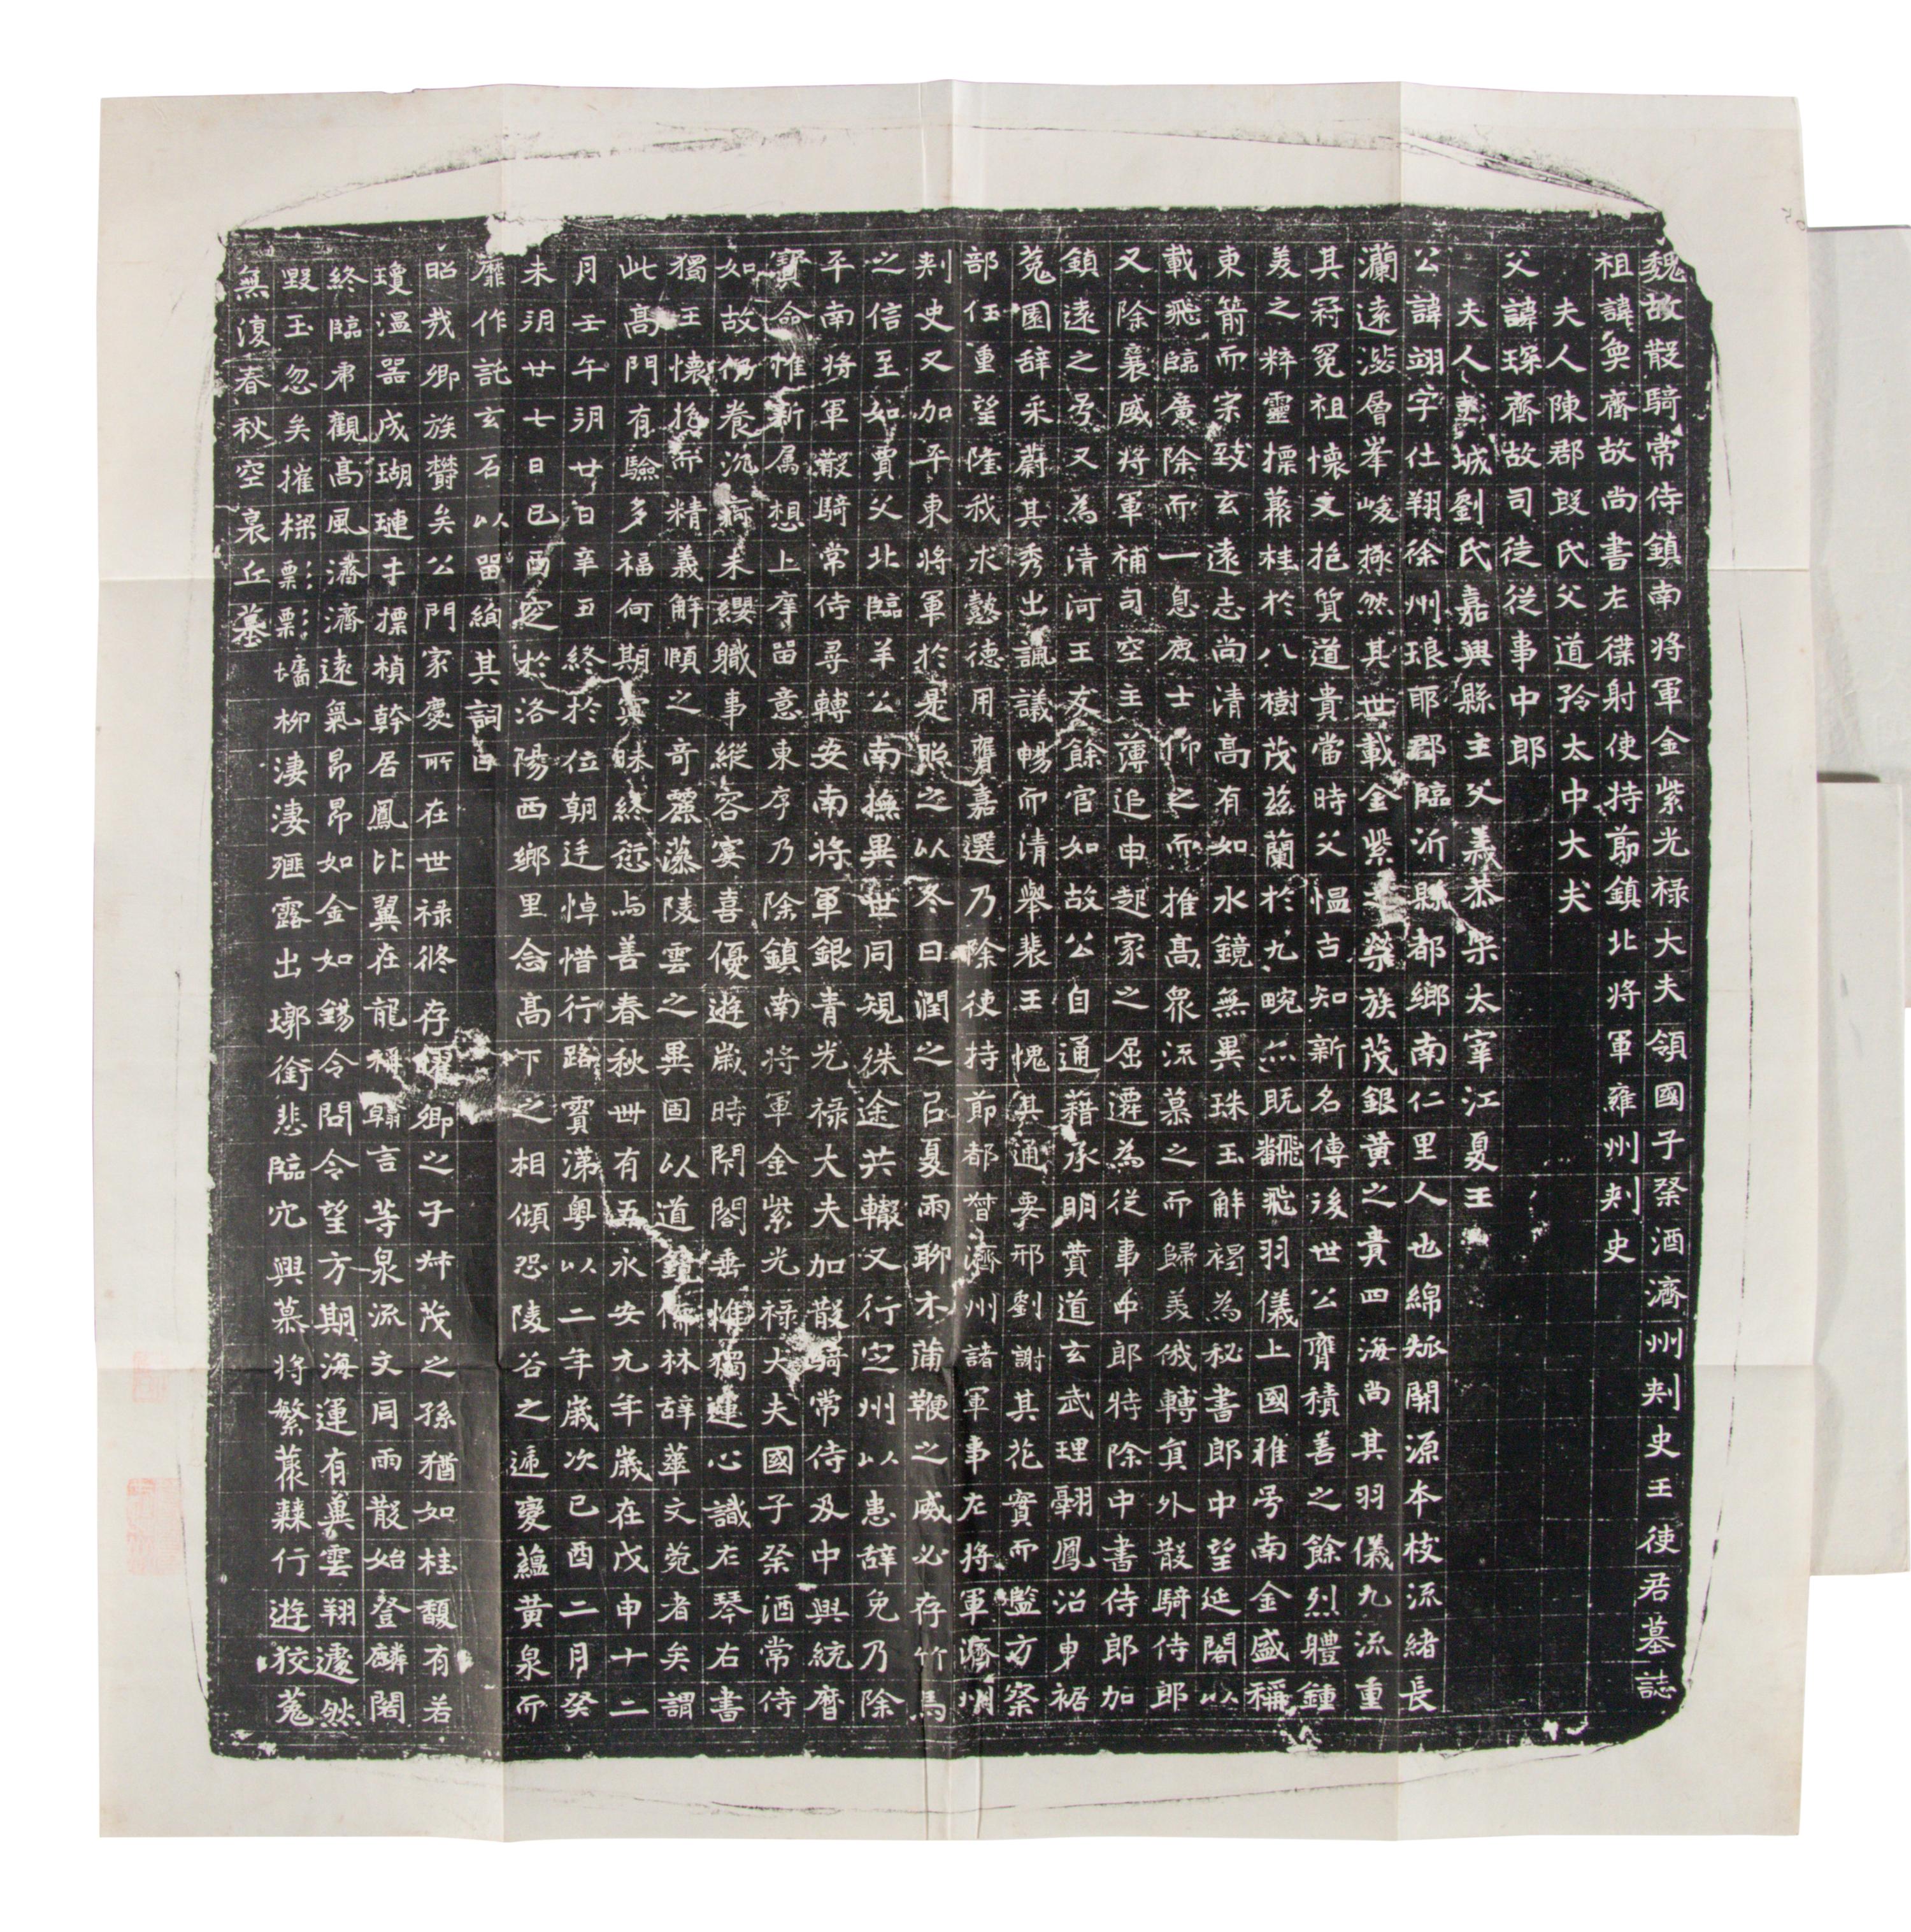 魏故散騎常侍鎮南將軍金紫光祿大夫領國子祭酒濟州刾史王使君墓誌
祖諱奐齊故尚書左僕射使持節鎮北將軍雍州刾史
夫人陳郡殷氏父道矜太中大夫
父諱琛齊故司徒從事中郎
夫人彭城劉氏嘉興縣主父義恭宋太宰江夏王
公諱翊字仕翔徐州琅耶郡臨沂縣都鄉南仁里人也綿㲼開源本枝流緒長
瀾遠淤層峯峻極然其世載金紫榮族茂銀黃之貴四海尚其羽儀九流重
其冠冕祖懷文抱質道貴當時父愠古知新名傳後世公膺積善之餘烈體鍾
美之粹靈摽藂桂於八樹茂茲蘭於九畹亦既飜飛羽儀上國雅号南金盛稱
東箭而宗致玄遠志尚清高有如水鏡無異珠玉解褐為秘書郎中望延閣以
載飛臨廣除而一息庶士仰之而推高眾流慕之而歸美俄轉貟外散騎侍郎
又除襄威將軍補司空主薄追申起家之屈遷為從事中郎特除中書侍郎加
鎮遠之号又為清河王友餘官如故公自通藉承明賁道玄武理翮鳳沼申裾
菟園辞采蔚其秀出諷議暢而清舉裴王愧其通要邢劉謝其花實而監方寮
部伍重望隆我求懿德用膺嘉選乃除使持節都督濟州諸軍事左將軍濟州
刾史又加平東將軍於是煦之以冬日潤之以夏雨聊木蒲鞭之威必存竹馬
之信至如賈父北臨羊公南撫異世同規殊途共轍又行定州以患辞免乃除
平南將軍散騎常侍尋轉安南將軍銀青光祿大夫加散騎常侍及中興統曆
寶命惟新属想上庠留意東序乃除鎮南將軍金紫光祿大夫國子祭酒常侍
如故仍養沉痾未纓職事縱容宴喜優遊歲時閇閤垂帷獨運心識左琴右書
獨王懷抱而精義解頤之奇麗藻陵雲之異固以道鏡儒林辞華文菀者矣謂
此高門有驗多福何期寘昧終愆与善春秋丗有五永安元年歲在戊申十二
月壬午朔廿日辛丑終於位朝廷悼惜行路賓涕粵以二年歲次己酉二月癸
未朔廿七日己酉窆於洛陽西鄉里念高下之相傾怨陵谷之遞變蘊黃泉而
靡作託玄石以留絢其詞曰
昭哉鄉族欝矣公門家慶所在世祿攸存卿之子茂之孫猶如桂馥有若
瓊温器成瑚璉才摽楨幹居鳳比翼在龍稱翰言等泉流文同雨散始登麟閣
終臨帝觀高風濟濟遠氣昂昂如金如錫令問令望方期海運有冀雲翔遽然
毀玉忽矣摧樑飄飄墉柳淒淒殯露出墎銜悲臨穴興慕將繁藂蕀行遊狡菟
無復春秋空哀丘墓